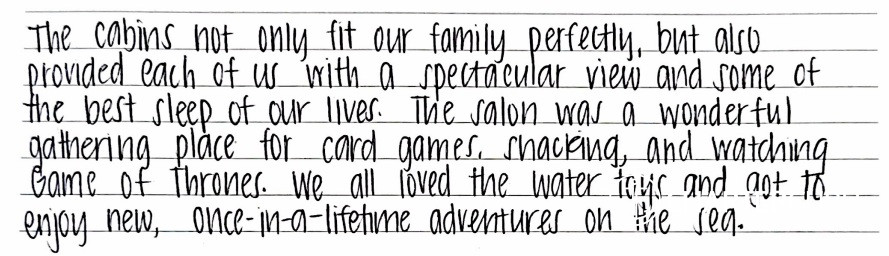 The cabins not only fit our family perfectly, but also
provided each of us with a spectacular view and some of
the best sleep of our lives. The salon was a wonderful
gathering place for card games, snacking, and watching
Game of Thrones. We all loved the water toys and got to
enjoy new, once-in-a-lifetime adventures on the sea.